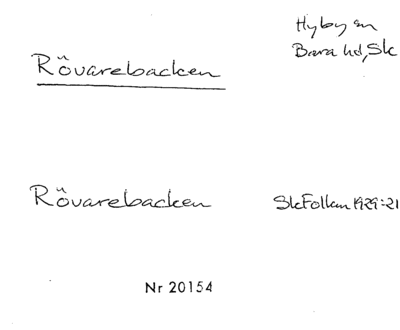 Hyby sn
Bara hd, Sk
Rövarebacken
Rövarebacken
SkFolkm 1929:21
Nr 20154